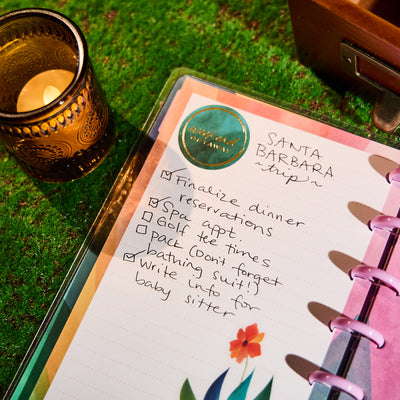 weekend
GETAWAY
SANTA
BARBARA
~trip~
Finalize dinner
reservations
Spa appt.
Golf tee times
pack (Don't forget
bathing suit!)
Write info for
baby sitter